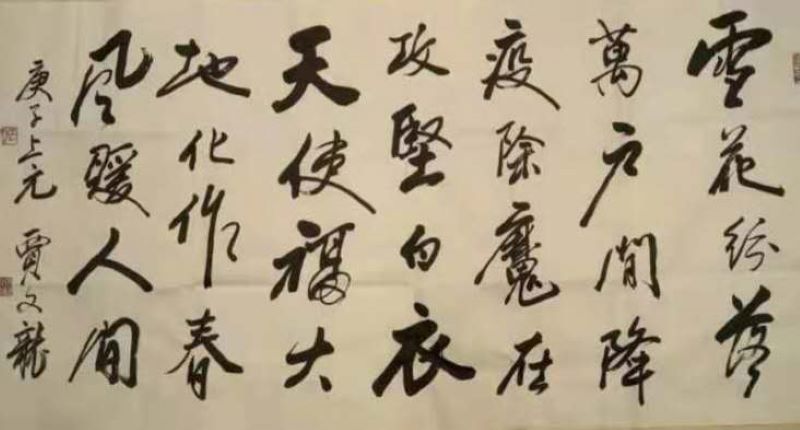 雪花纷落
萬户間降
疫除魔在
攻堅白衣
天使福大
地化作春
风暖人间
庚子上元 贾文龍